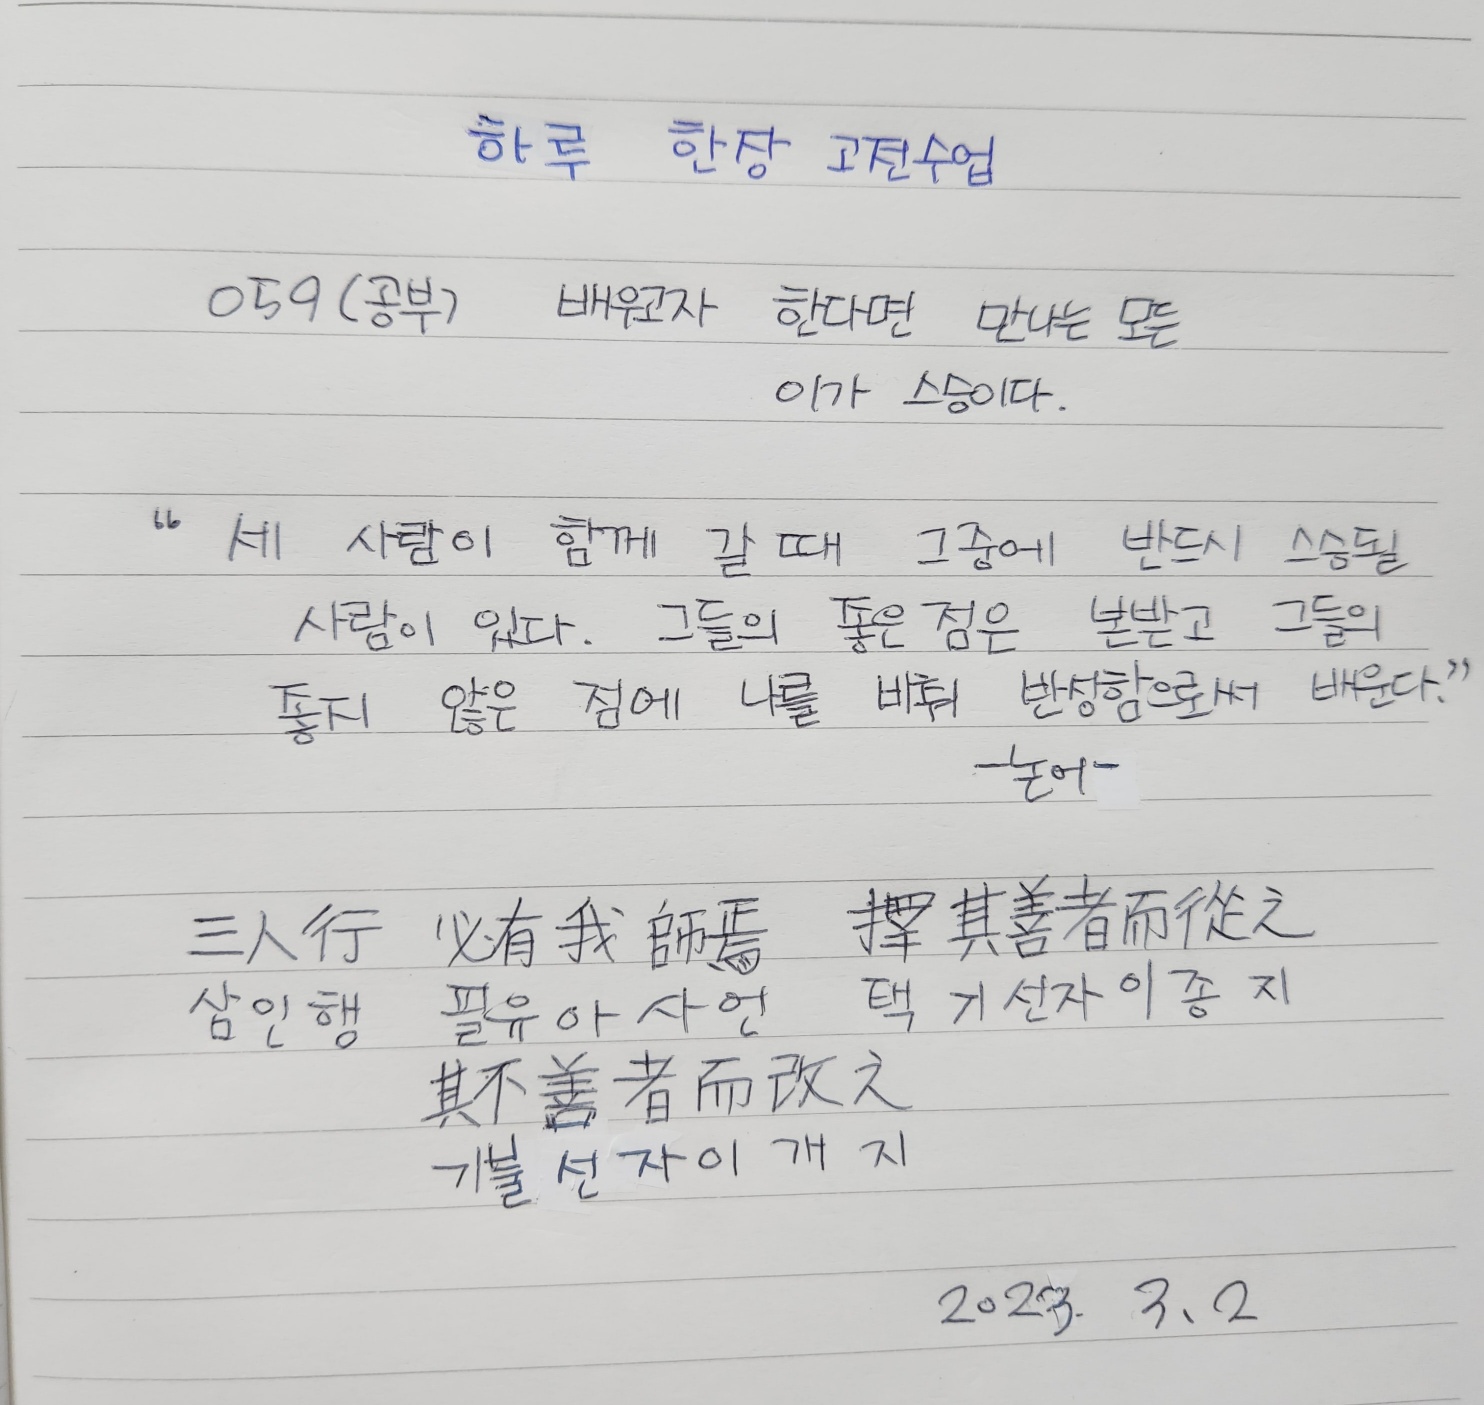 하루 한장 고전수업
059(공부) 배우고자 한다면 만나는 모든
이가 스승이다.
“세 사람이 함께 갈 때 그중에 반드시 스승될
사람이 있다. 그들의 좋은 점은 본받고 그들의
좋지 않은 점에 나를 비춰 반성함으로써 배운다.”
-논어-
三人行 必有我師焉 擇其善者而從之
삼인행 필유아사언 택기선자이종지
其不善者而改之
기불선자이개지
2023. 3. 2